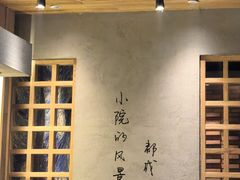 小院的风景
都成